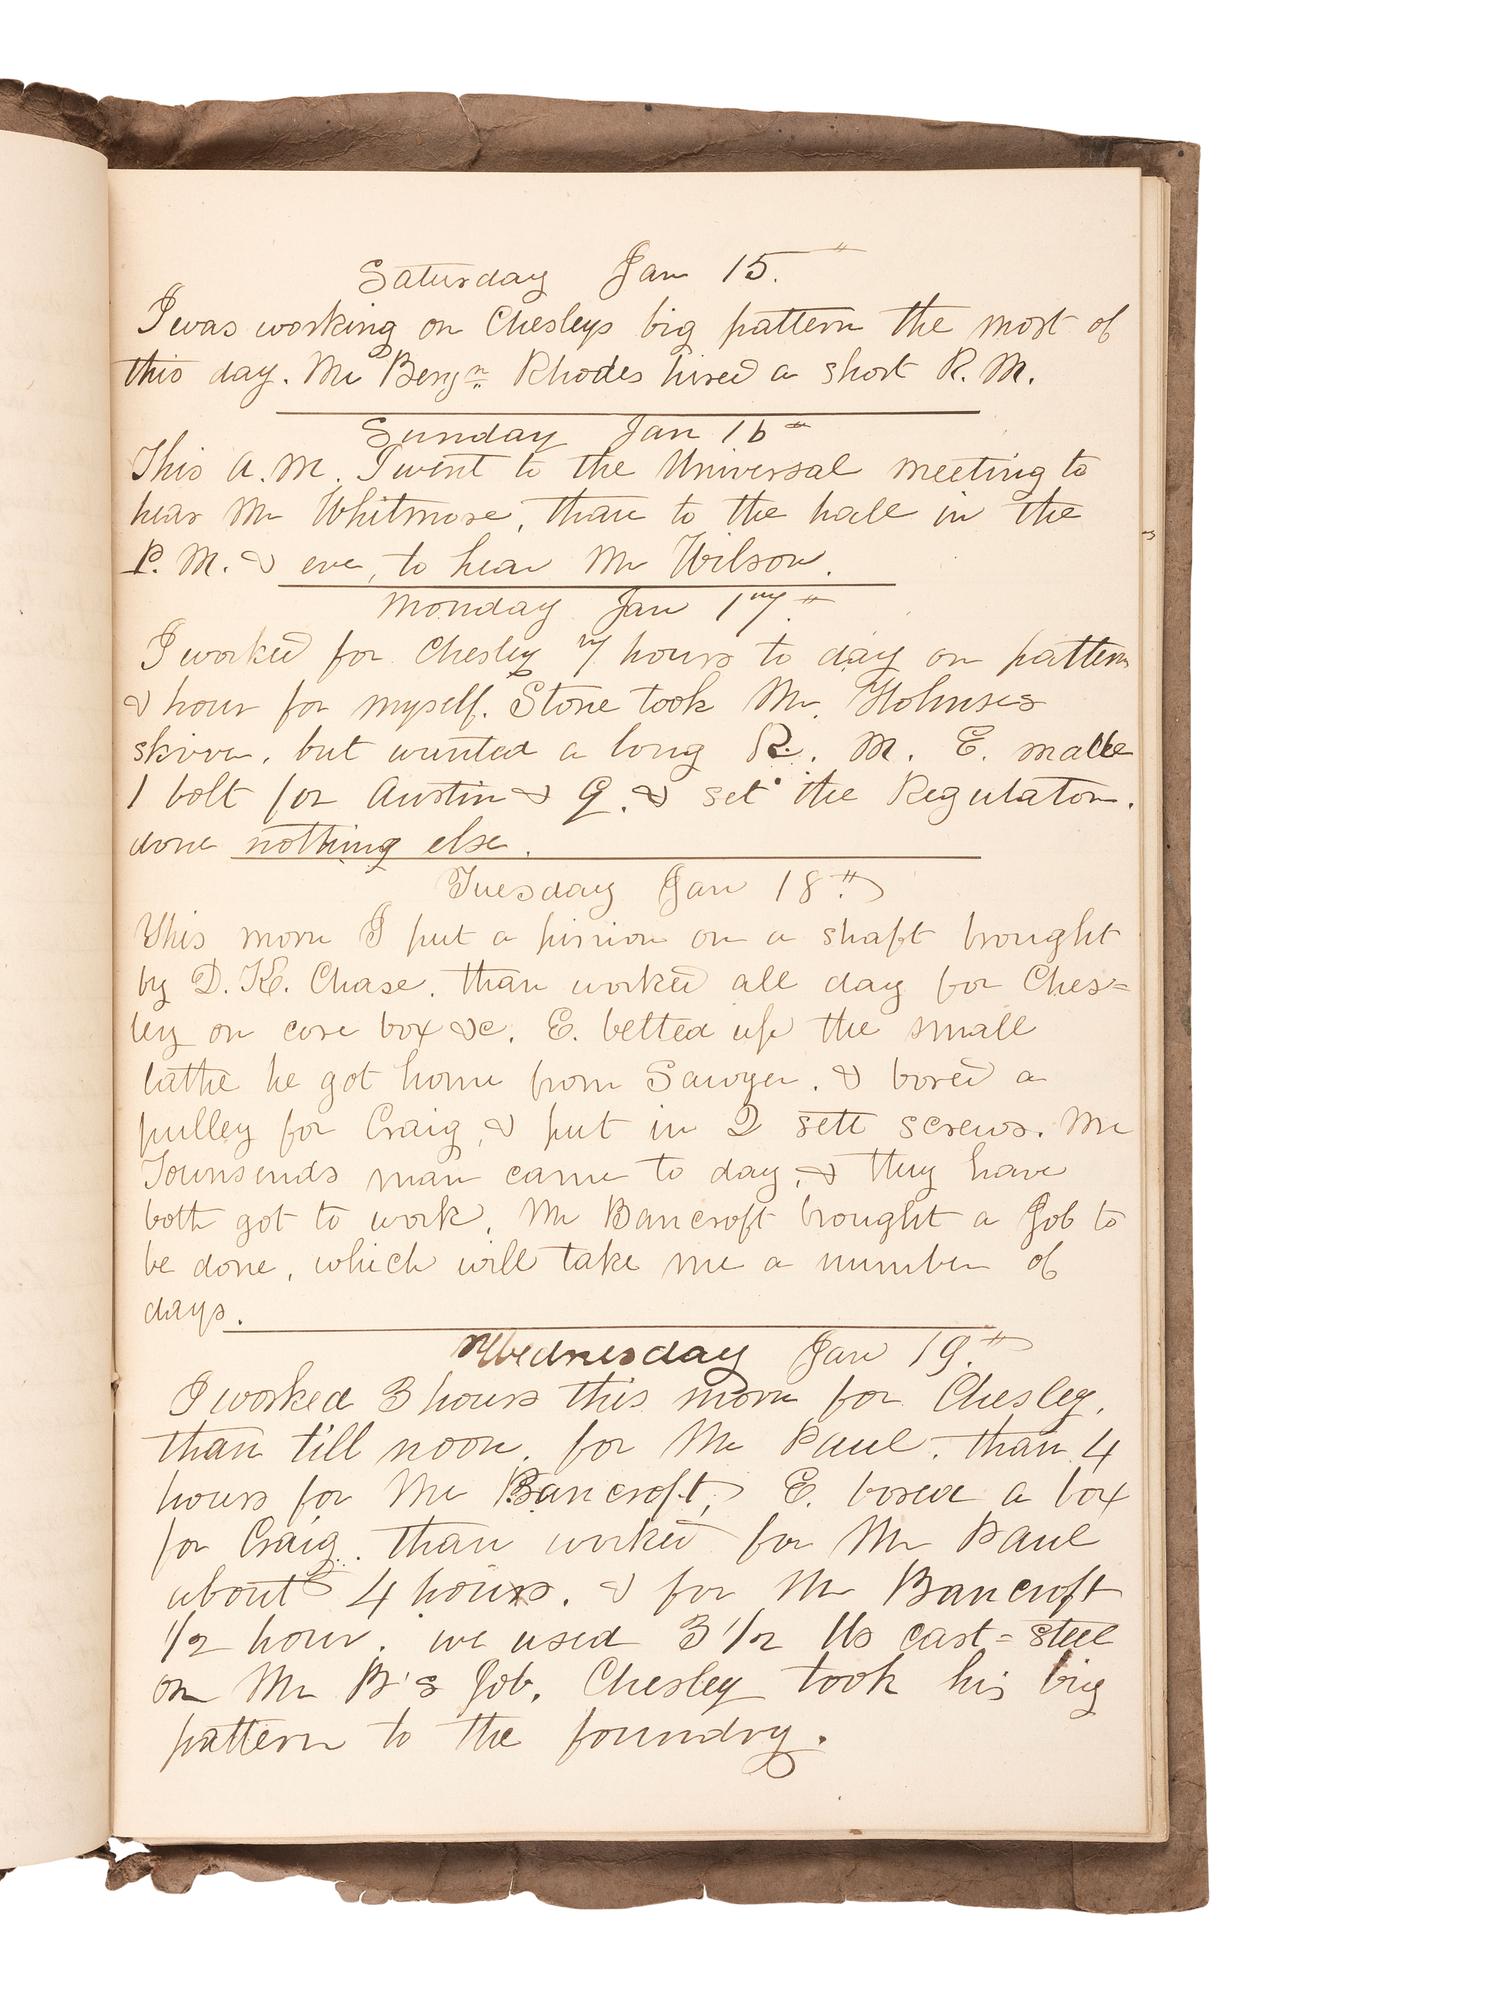 Saturday Jan 15."
I was working on Chesleys big pattern the most of
this day. Mr Benjn Rhodes hired a short R. M.
Sunday Jan 16th
This A.M. I went to the Universal meeting to
hear Mr Whitmore, than to the hall in the
P.M. & eve, to hear Mr Wilson.
Monday Jan 17th
I worked for Chesley 7 hours to day on pattern
& hour for myself. Stone took Mr. Holmses
but wanted a long R. M. E. made
1 bolt for Austin & G. & set the Regulator.
done nothing else.
Tuesday Jan 18th
This morn I put a pinion on a shaft brought
by D. K. Chase. than worked all day for Ches=
ley on core box &c. E. belted up the small
lathe he got home from Sawyer. & bored a
pulley for Craig, & put in 2 sett screws. Mr
Townsends man came to day, & they have
both got to work. Mr Bancroft brought a Job to
be done, which will take me a number of
days.
Wednesday Jan 19.th
I worked 3 hours this morn for Chesley.
than till noon. for Mr Paul. than 4
hours for Mr Bancroft, E. bored a box
for Craig. than worked for Mr Paul
about 4 hours. & for Mr Bancroft
1/2 hour. we used 3 1/2 lbs cast=steel
on Mr B's Job. Chesley took his big
pattern to the foundry.